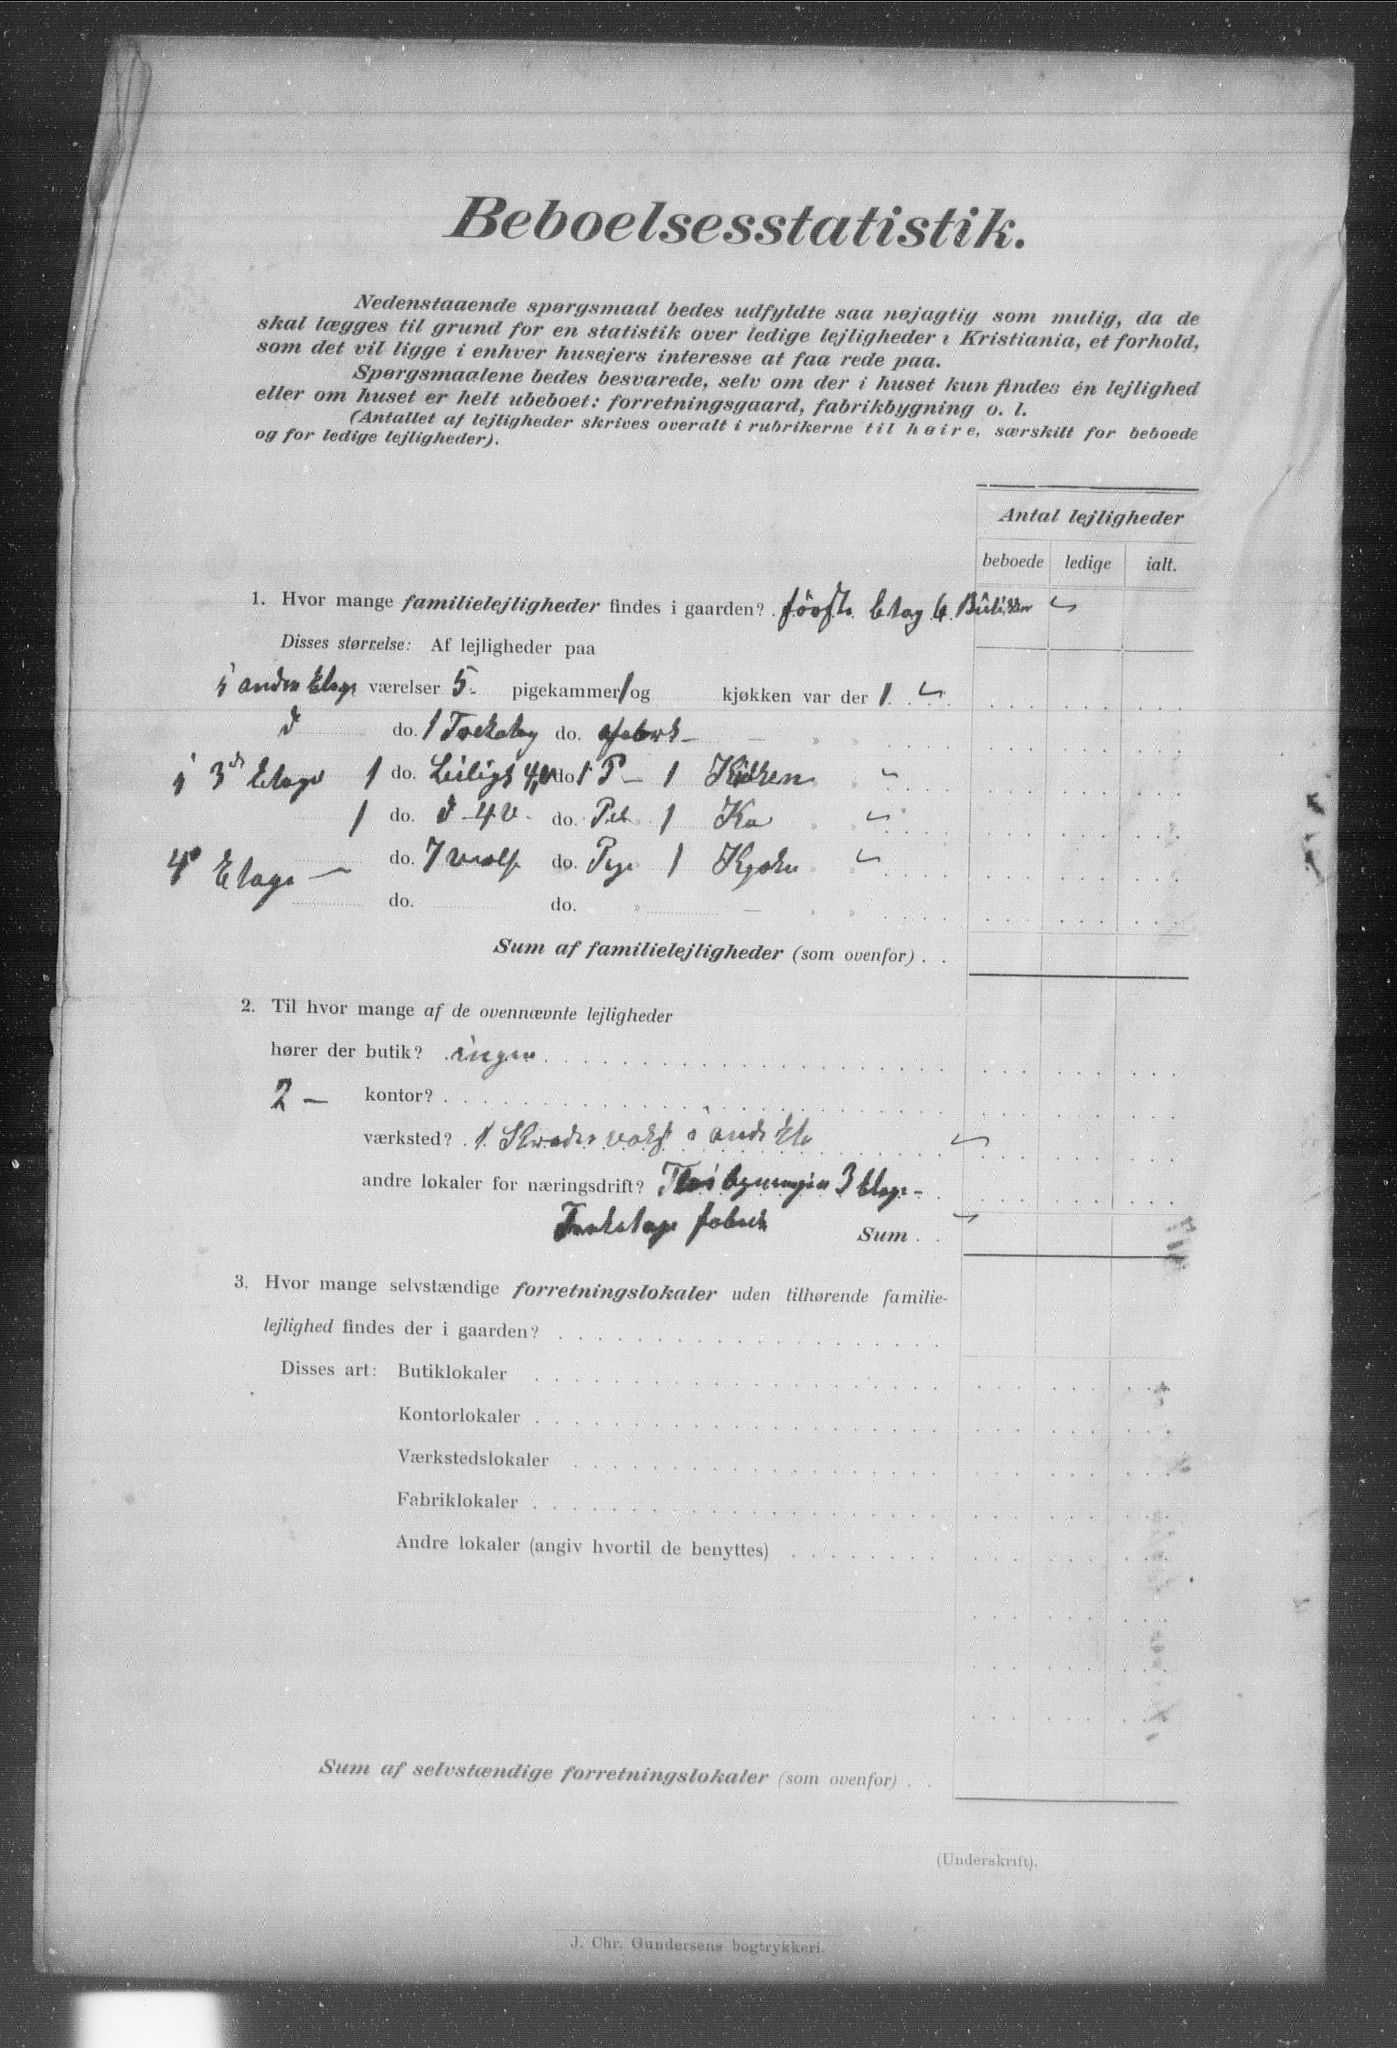 Beboelsesstatistik.
Nedenstaaende spørgsmaal bedes udfyldte saa nøjagtig som mulig, da de
skal lægges til grund for en statistik over ledige lejligheder i Kristiania, et forhold,
som det vil ligge i enhver husejers interesse at faa rede paa.
Spørgsmaalene bedes besvarede, selv om der i huset kun findes én lejlighed
eller om huset er helt ubeboet: forretningsgaard, fabrikbygning o. l.
(Antallet af lejligheder skrives overalt i rubrikerne til høire, særskilt for beboede
og for ledige lejligheder).
Antal lejligheder
beboede ledige ialt.
1. Hvor mange familielejligheder findes i gaarden? Etag 6
Disses størrelse: Af lejligheder paa
i Etage værelser 5 - pigekammer 1 og kjøkken var der 1
do. 1 do.
i 3 Etage 1 do. do. 1 P - 1
1 do. 4 V do. 1
4 Etage - do. 7 do. 1
do. do.
Sum af familielejligheder (som ovenfor) . .
2. Til hvor mange af de ovennævnte lejligheder
hører der butik? ingen
2 - kontor?
værksted? 1 i
andre lokaler for næringsdrift? 3 Etage -
Sum . .
3. Hvor mange selvstændige forretningslokaler uden tilhørende familie-
lejlighed findes der i gaarden?
Disses art: Butiklokaler
Kontorlokaler
Værkstedslokaler
Fabriklokaler
Andre lokaler (angiv hvortil de benyttes)
Sum af selvstændige forretningslokaler (som ovenfor) . .
(Underskrift).
J. Chr. Gundersens bogtrykkeri.